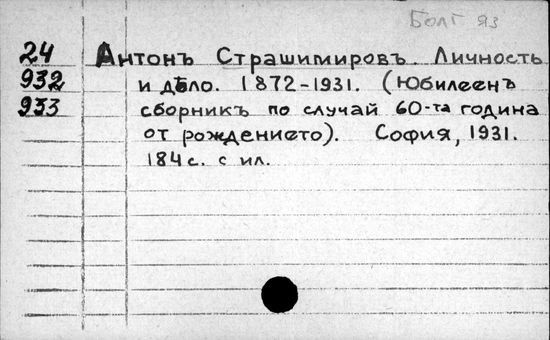 Болг яз
24 Антонъ Страшимировъ. Личность
932 и дѣло. 1872-1931. (Юбилеенъ
933 сборникъ по случай 60-та година
от рождението). София, 1931.
184 с. с ил.